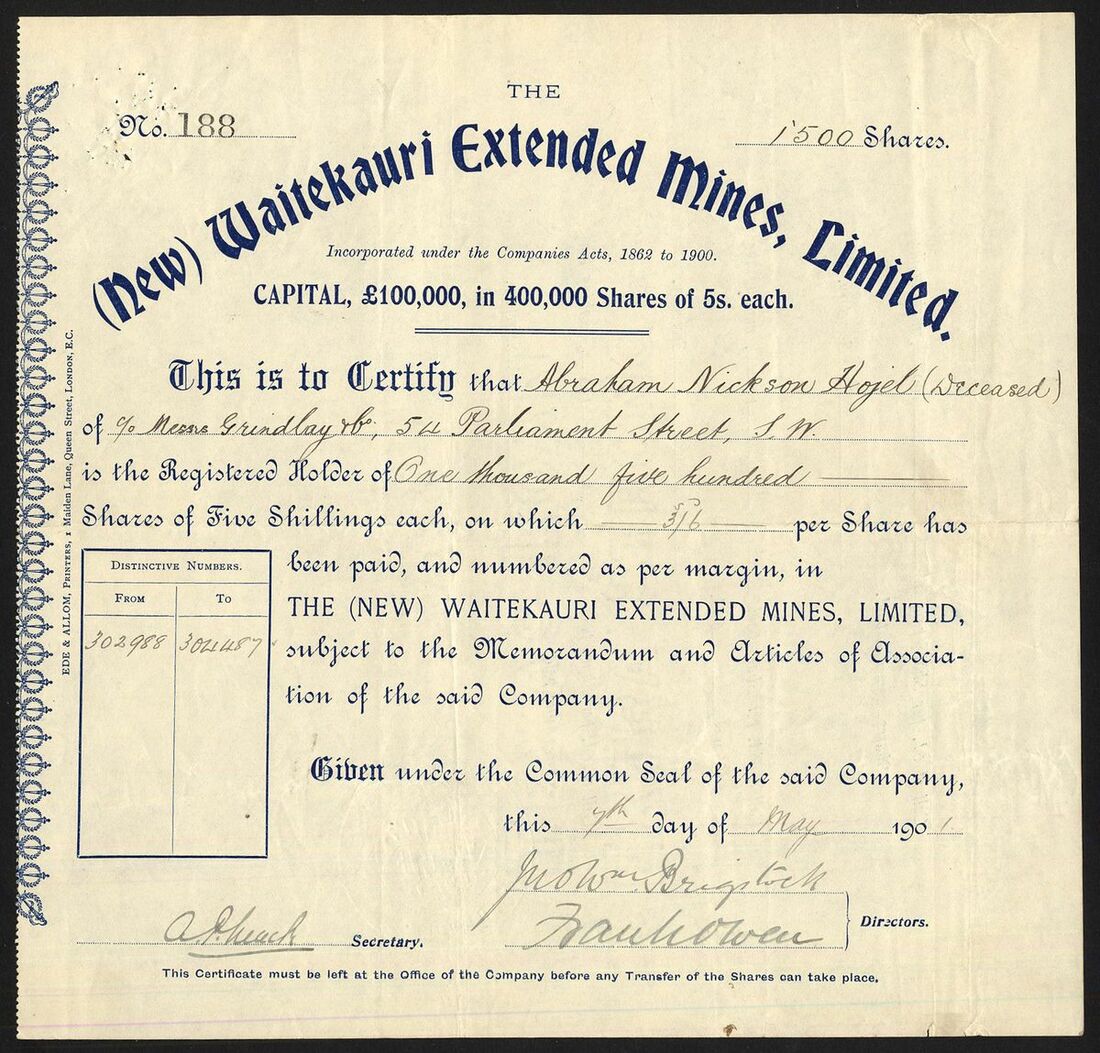 THE
No. 188
1500 Shares.
(New) Waitekauri Extended Mines, Limited.
Incorporated under the Companies Acts, 1862 to 1900.
CAPITAL, £100,000, in 400,000 Shares of 5s. each.
This is to Certify that Abraham Nickson Hojel (Deceased)
of c/o Messrs Grindlay & Co, 54 Parliament Street, S.W.
is the Registered Holder of One thousand five hundred
Shares of Five Shillings each, on which 3/6 per Share has
been paid, and numbered as per margin, in
THE (NEW) WAITEKAURI EXTENDED MINES, LIMITED,
subject to the Memorandum and Articles of Associa-
tion of the said Company.
DISTINCTIVE NUMBERS.
FROM TO
302988 304487
Given under the Common Seal of the said Company,
this 7th day of May 1901
Jno Wm. Brigstock
Frank Owen
Directors.
Secretary.
This Certificate must be left at the Office of the Company before any Transfer of the Shares can take place.
EDE & ALLOM, PRINTERS, 1 Maiden Lane, Queen Street, LONDON, E.C.